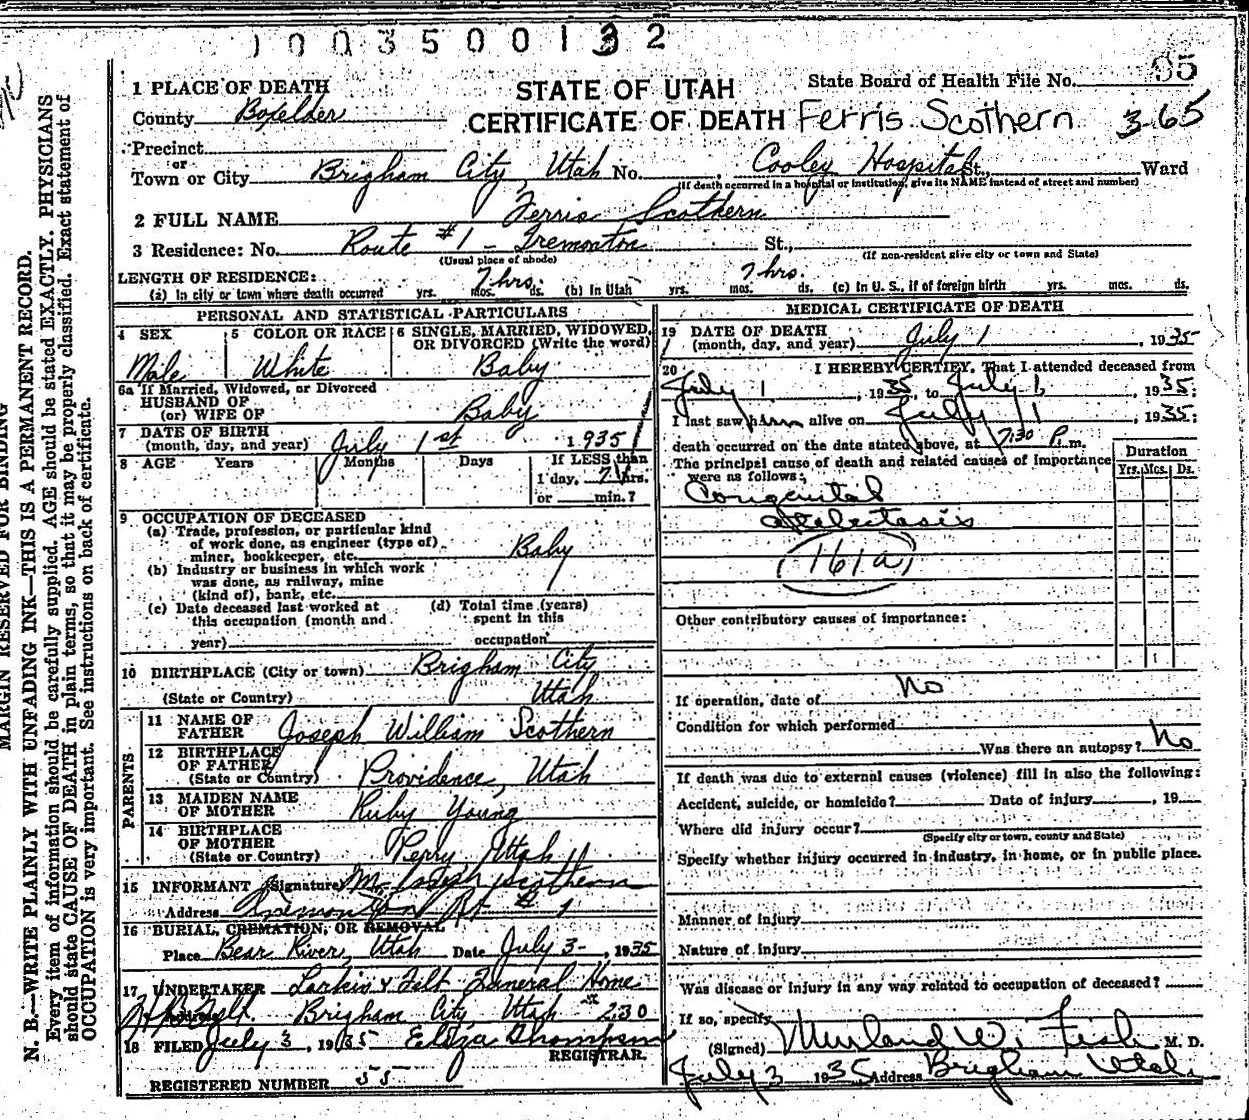 1003500132
1 PLACE OF DEATH
STATE OF UTAH
State Board of Health File No. 95
County Boxelder
CERTIFICATE OF DEATH Ferris Scothern 365
Precinct
or
Town or City Brigham City, Utah No. , Cooley Hospital St., Ward
(If death occurred in a hospital or institution, give its NAME instead of street and number)
2 FULL NAME Ferris Scothern
3 Residence: No. Route #1 - Tremonton St.,
(Usual place of abode) (If non-resident give city or town and State)
LENGTH OF RESIDENCE: 7 hrs. 7 hrs.
(a) In city or town where death occurred yrs. mos. ds. (b) In Utah yrs. mos. ds. (c) In U. S., if of foreign birth yrs. mos. ds.
PERSONAL AND STATISTICAL PARTICULARS
4 SEX 5 COLOR OR RACE 6 SINGLE, MARRIED, WIDOWED, OR DIVORCED (Write the word)
Male White Baby
6a If Married, Widowed, or Divorced
HUSBAND OF
(or) WIFE OF Baby
7 DATE OF BIRTH
(month, day, and year) July 1st 1935
8 AGE Years Months Days If LESS than
1 day, 7 hrs.
or min.?
9 OCCUPATION OF DECEASED
(a) Trade, profession, or particular kind
of work done, as engineer (type of)
miner, bookkeeper, etc. Baby
(b) Industry or business in which work
was done, as railway, mine
(kind of), bank, etc.
(c) Date deceased last worked at
this occupation (month and
year)
(d) Total time (years)
spent in this
occupation
10 BIRTHPLACE (City or town) Brigham City
(State or Country) Utah
PARENTS
11 NAME OF
FATHER Joseph William Scothern
12 BIRTHPLACE
OF FATHER
(State or Country) Providence, Utah
13 MAIDEN NAME
OF MOTHER Ruby Young
14 BIRTHPLACE
OF MOTHER
(State or Country) Perry, Utah
15 INFORMANT (Signature) Mr. Joseph Scothern
Address Tremonton Rt # 1
16 BURIAL, CREMATION, OR REMOVAL
Place Bear River, Utah Date July 3-, 1935
17 UNDERTAKER Larkin & Felt Funeral Home
Address Brigham City, Utah 230
18 FILED July 3, 1935 Eliza Thompson
REGISTRAR.
REGISTERED NUMBER 55
MEDICAL CERTIFICATE OF DEATH
19 DATE OF DEATH
(month, day, and year) July 1, 1935
20 I HEREBY CERTIFY, That I attended deceased from
July 1, 1935, to July 1, 1935;
I last saw him alive on July 1, 1935;
death occurred on the date stated above, at 7:30 P. m.
The principal cause of death and related causes of importance
were as follows:
Duration
Yrs. Mos. Ds.
Congenital
atelectasis
(161a)
Other contributory causes of importance:
If operation, date of No
Condition for which performed
Was there an autopsy? No
If death was due to external causes (violence) fill in also the following:
Accident, suicide, or homicide? Date of injury , 19
Where did injury occur?
(Specify city or town, county and State)
Specify whether injury occurred in industry, in home, or in public place.
Manner of injury
Nature of injury
Was disease or injury in any way related to occupation of deceased?
If so, specify
(Signed) Merland W. Fish M. D.
July 3 1935 Address Brigham Utah
MARGIN RESERVED FOR BINDING
N. B.—WRITE PLAINLY WITH UNFADING INK—THIS IS A PERMANENT RECORD.
Every item of information should be carefully supplied. AGE should be stated EXACTLY. PHYSICIANS
should state CAUSE OF DEATH in plain terms, so that it may be properly classified. Exact statement of
OCCUPATION is very important. See instructions on back of certificate.